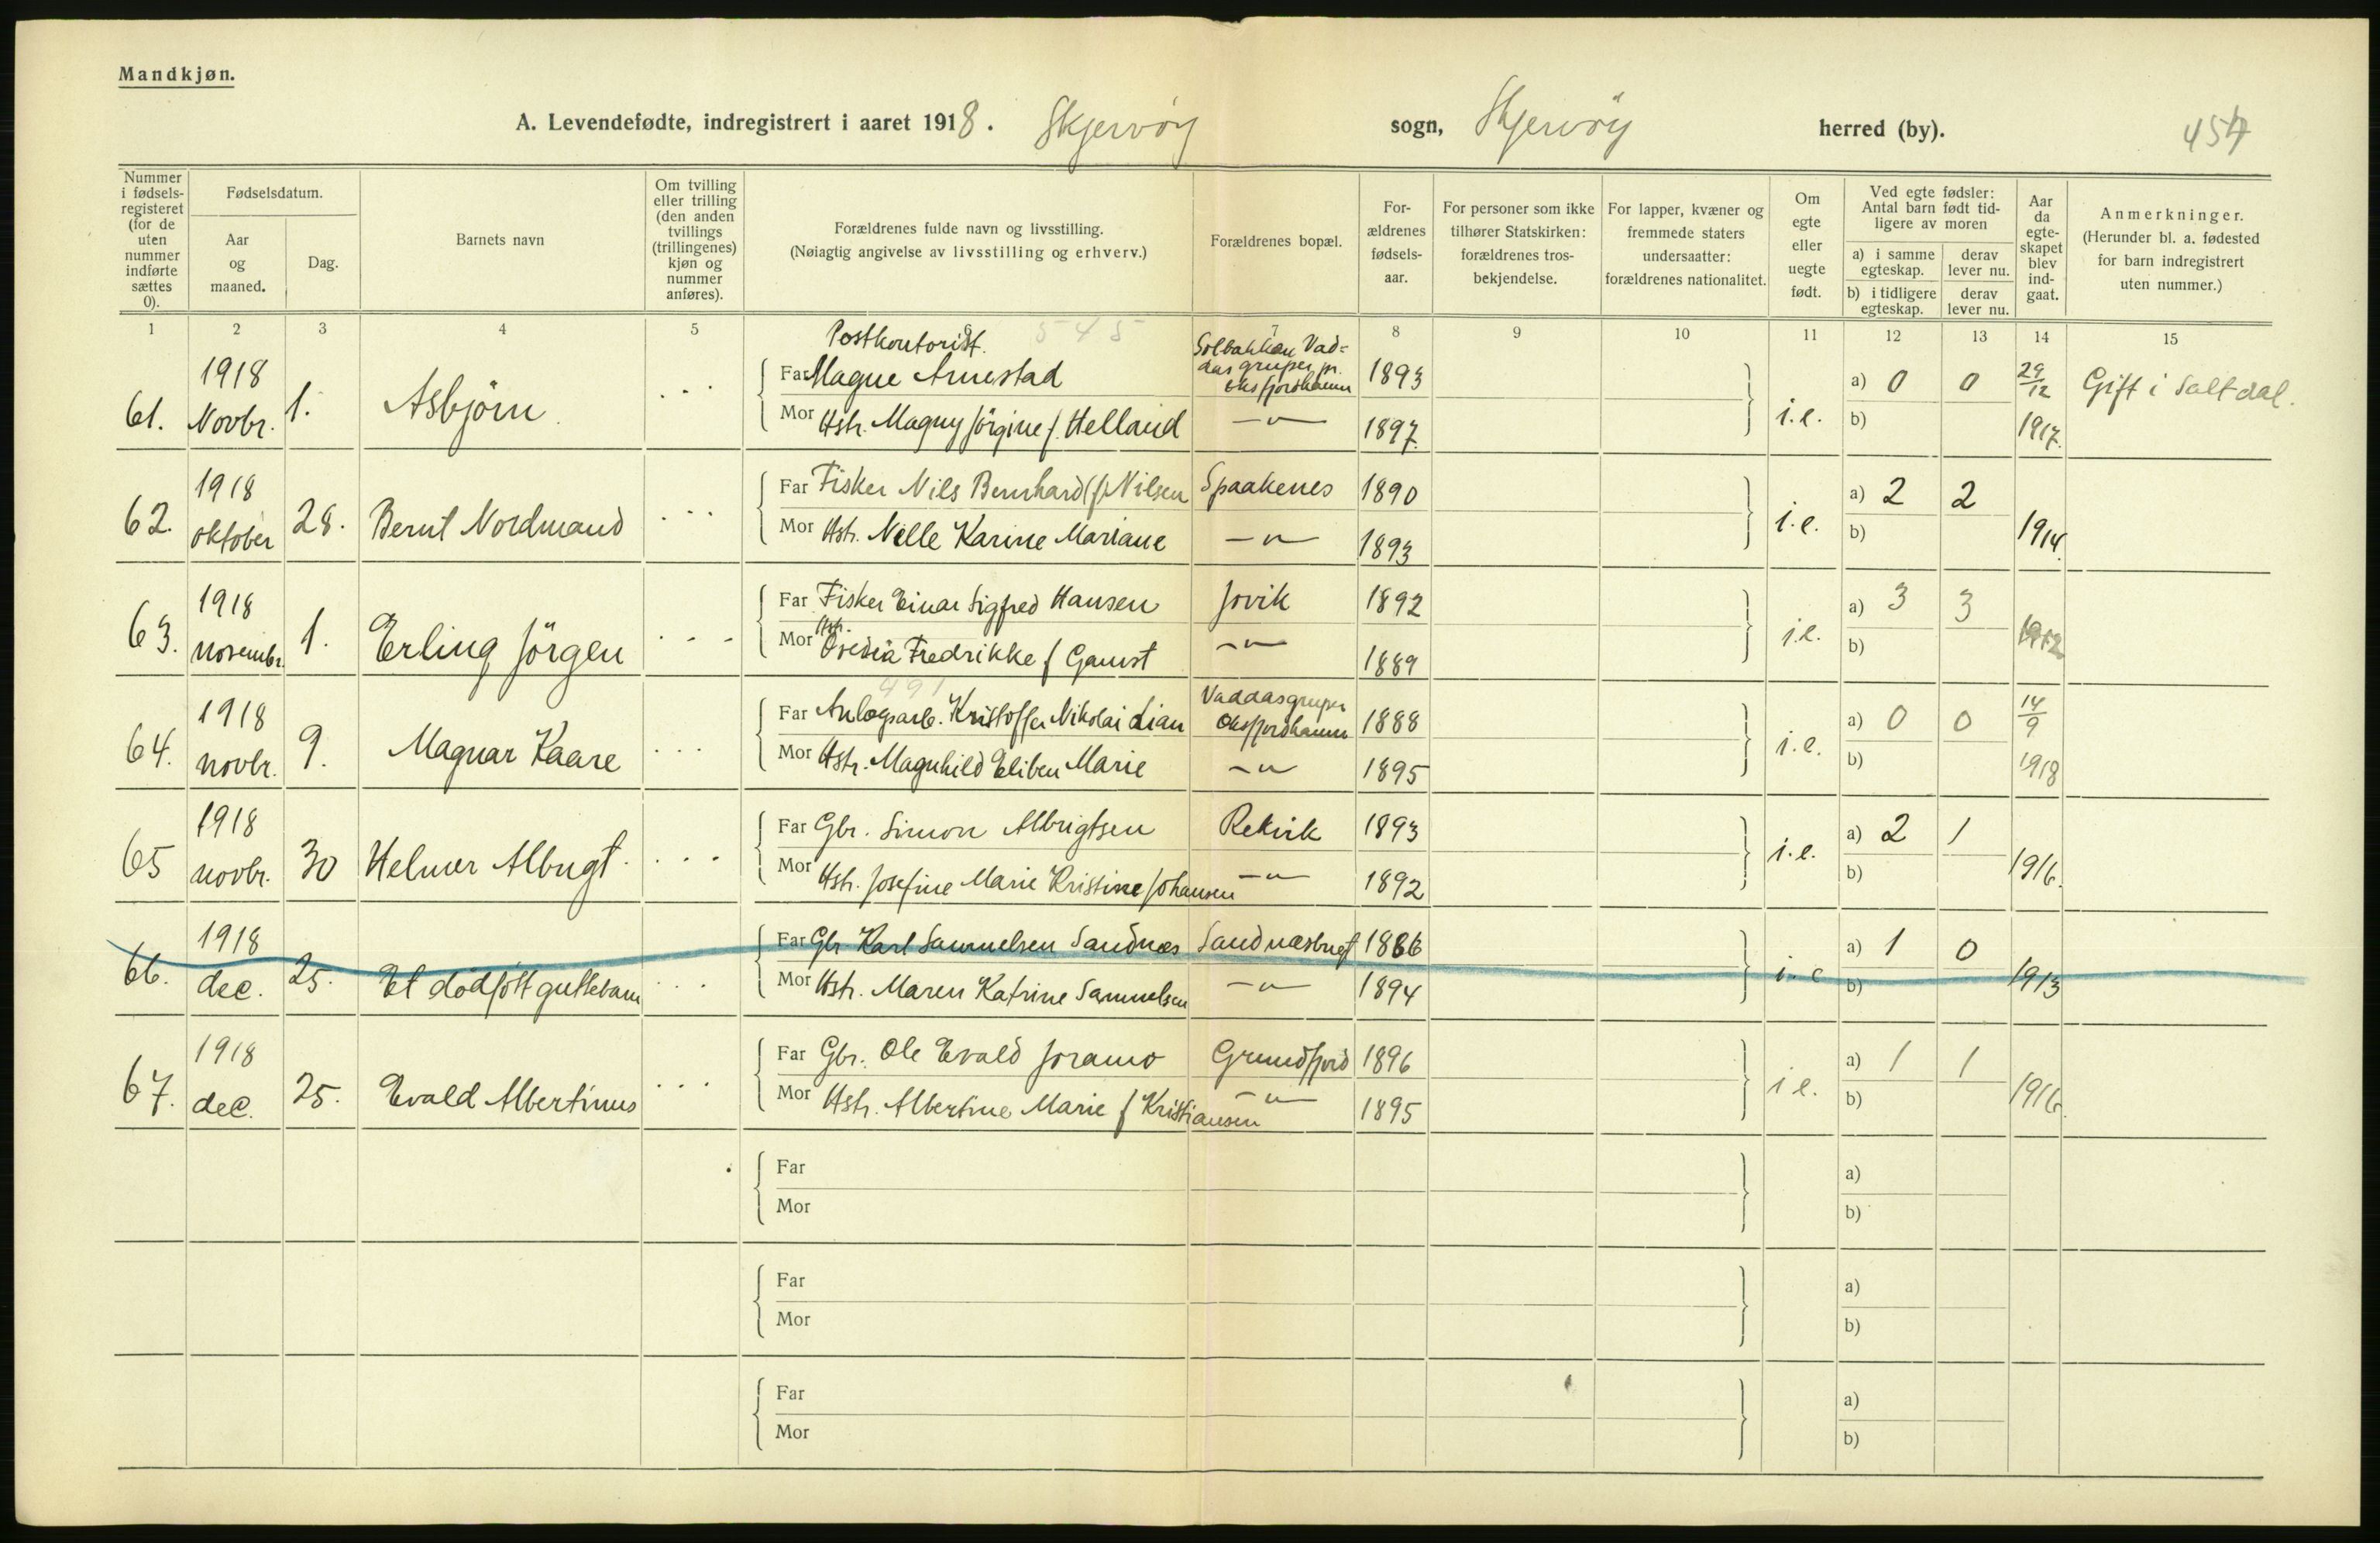 Mandkjøn.
A. Levendefødte, indregistrert i aaret 1918. Skjervöy sogn, Skjervöy herred (by). 457
Nummer i fødsels-registeret (for de uten nummer indførte sættes 0).
Fødselsdatum.
Aar og maaned.
Dag.
Barnets navn
Om tvilling eller trilling (den anden tvillings (trillingenes) kjøn og nummer anføres).
Forældrenes fulde navn og livsstilling.
(Nøiagtig angivelse av livsstilling og erhverv.)
Forældrenes bopæl.
For-ældrenes fødsels-aar.
For personer som ikke tilhører Statskirken: forældrenes tros-bekjendelse.
For lapper, kvæner og fremmede staters undersaatter: forældrenes nationalitet.
Om egte eller uegte født.
Ved egte fødsler: Antal barn født tid-ligere av moren
a) i samme egteskap. derav lever nu.
b) i tidligere egteskap. derav lever nu.
Aar da egte-skapet blev ind-gaat.
Anmerkninger.
(Herunder bl. a. fødested for barn indregistrert uten nummer.)
1 2 3 4 5 6 7 8 9 10 11 12 13 14 15
545
61. 1918 Novbr. 1. Asbjörn
Postkontorist.
Far Magne Arnestad Solbakken Vad=das gruper pr. Oksfjordhamn 1893
Mor Hstr. Magny Jörgine f. Helland —„— 1897.
i.e. a) 0 0 b) 29/12 1917. Gift i Saltdal.
62. 1918 oktober 28. Bernt Nordmand
Far Fisker Nils Bernhard (f) Nilsen Spaakenes 1890
Mor Hstr. Nelle Karine Mariane —„— 1893
i.e. a) 2 2 b) 1914.
63. 1918 novembr. 1. Erling Jörgen
Far Fisker Einar Sigfred Hansen Jovik 1892
Mor Hstr. Ovedia Fredrikke f Gamst —„— 1889
i.e. a) 3 3 b) 1912
491
64. 1918 novbr. 9. Magnar Kaare
Far Anlægsarb. Kristoffer Nikolai Lian Vaddasgruper Oksfjordhamn 1888
Mor Hstr. Magnhild Eliben Marie —„— 1895
i.e. a) 0 0 b) 14/9 1918
65 1918 novbr. 30 Helmer Albrigt
Far Gbr. Simon Albrigtsen Rekvik 1893
Mor Hstr. Josefine Marie Kristine Johansen —„— 1892
i.e. a) 2 1 b) 1916.
66. 1918 dec. 25. Et dödfött guttebarn
Far Gbr Karl Samuelsen Sandnæs Sandnæsbugt 1886
Mor Hstr. Maren Katrine Samuelsen —„— 1894
i.e a) 1 0 b) 1913
67. 1918 dec. 25. Evald Albertinus
Far Gbr. Ole Evald Joramo Grundfjord 1896
Mor Hstr. Albertine Marie f Kristiansen —„— 1895
i e. a) 1 1 b) 1916.
Far
Mor
a)
b)
Far
Mor
a)
b)
Far
Mor
a)
b)